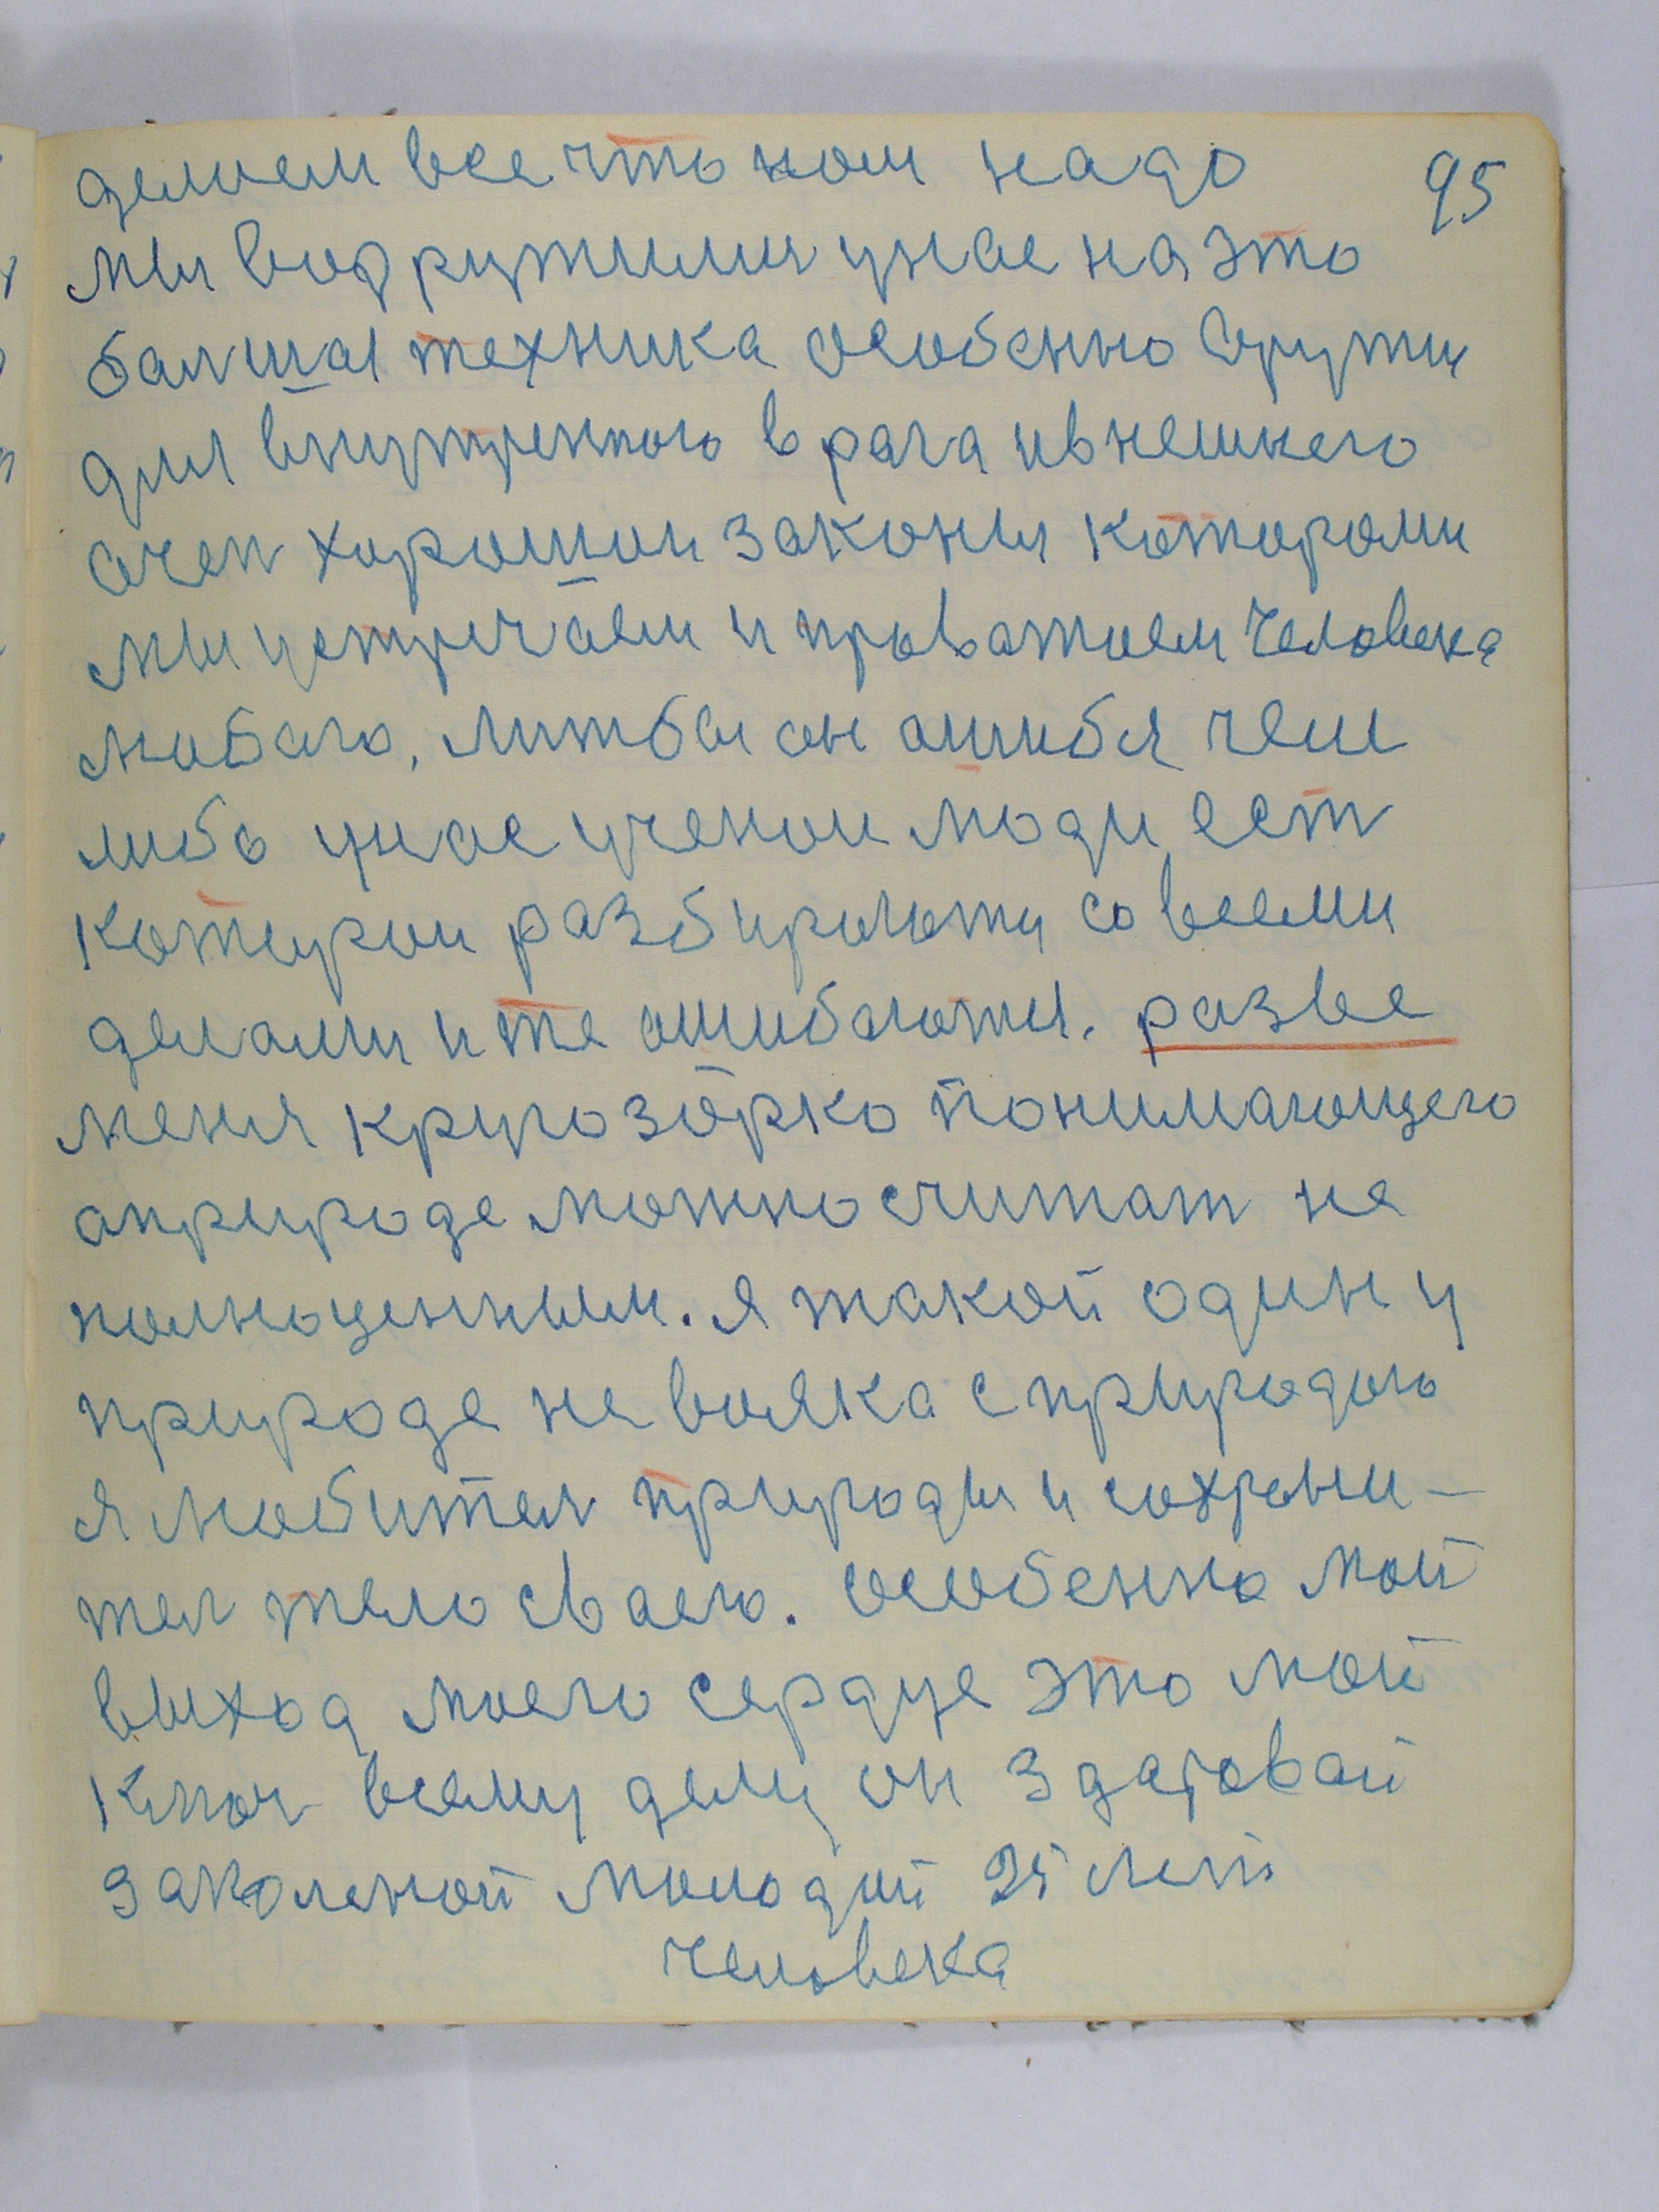 делаем все что нам надо 95
мы вооружили унас на это
балшая техника особенно Оружия
для внутреного врага ивнешнего
очен хорошои законы котороми
мы устричаем и проважаем Человека
любого, лижбы он ошибся чем
либо унас ученои люди ест
которои разбираются со всеми
делами и те ошибаются. разве
меня кругозорко понимающего
априроде можно считат не
полноценным. я такой один у
природе не вояка с природою
я любител природы и сохрани-
тел тела сваего. особенно мой
выход моего сердце это мой
Ключ всему делу он здаровай
закаленой молодый 25 лет
человека